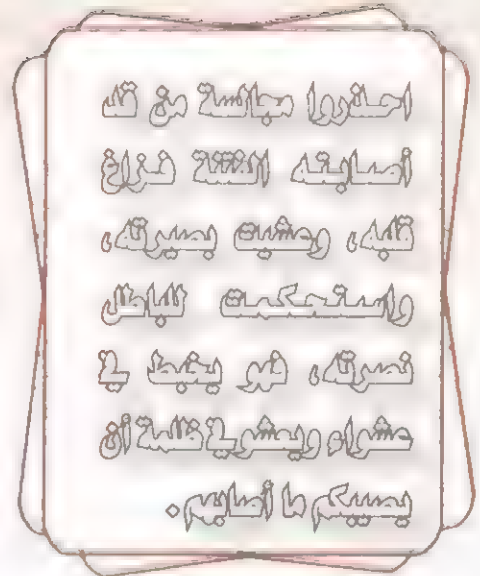 احذروا مجالسة من قد
أصابته الفتنة فزاغ
قلبه، وعشيت بصيرته،
واستحكمت للباطل
نصرته، فهو يخبط في
عشواء ويعشو في ظلمة أن
يصيبكم ما أصابهم.